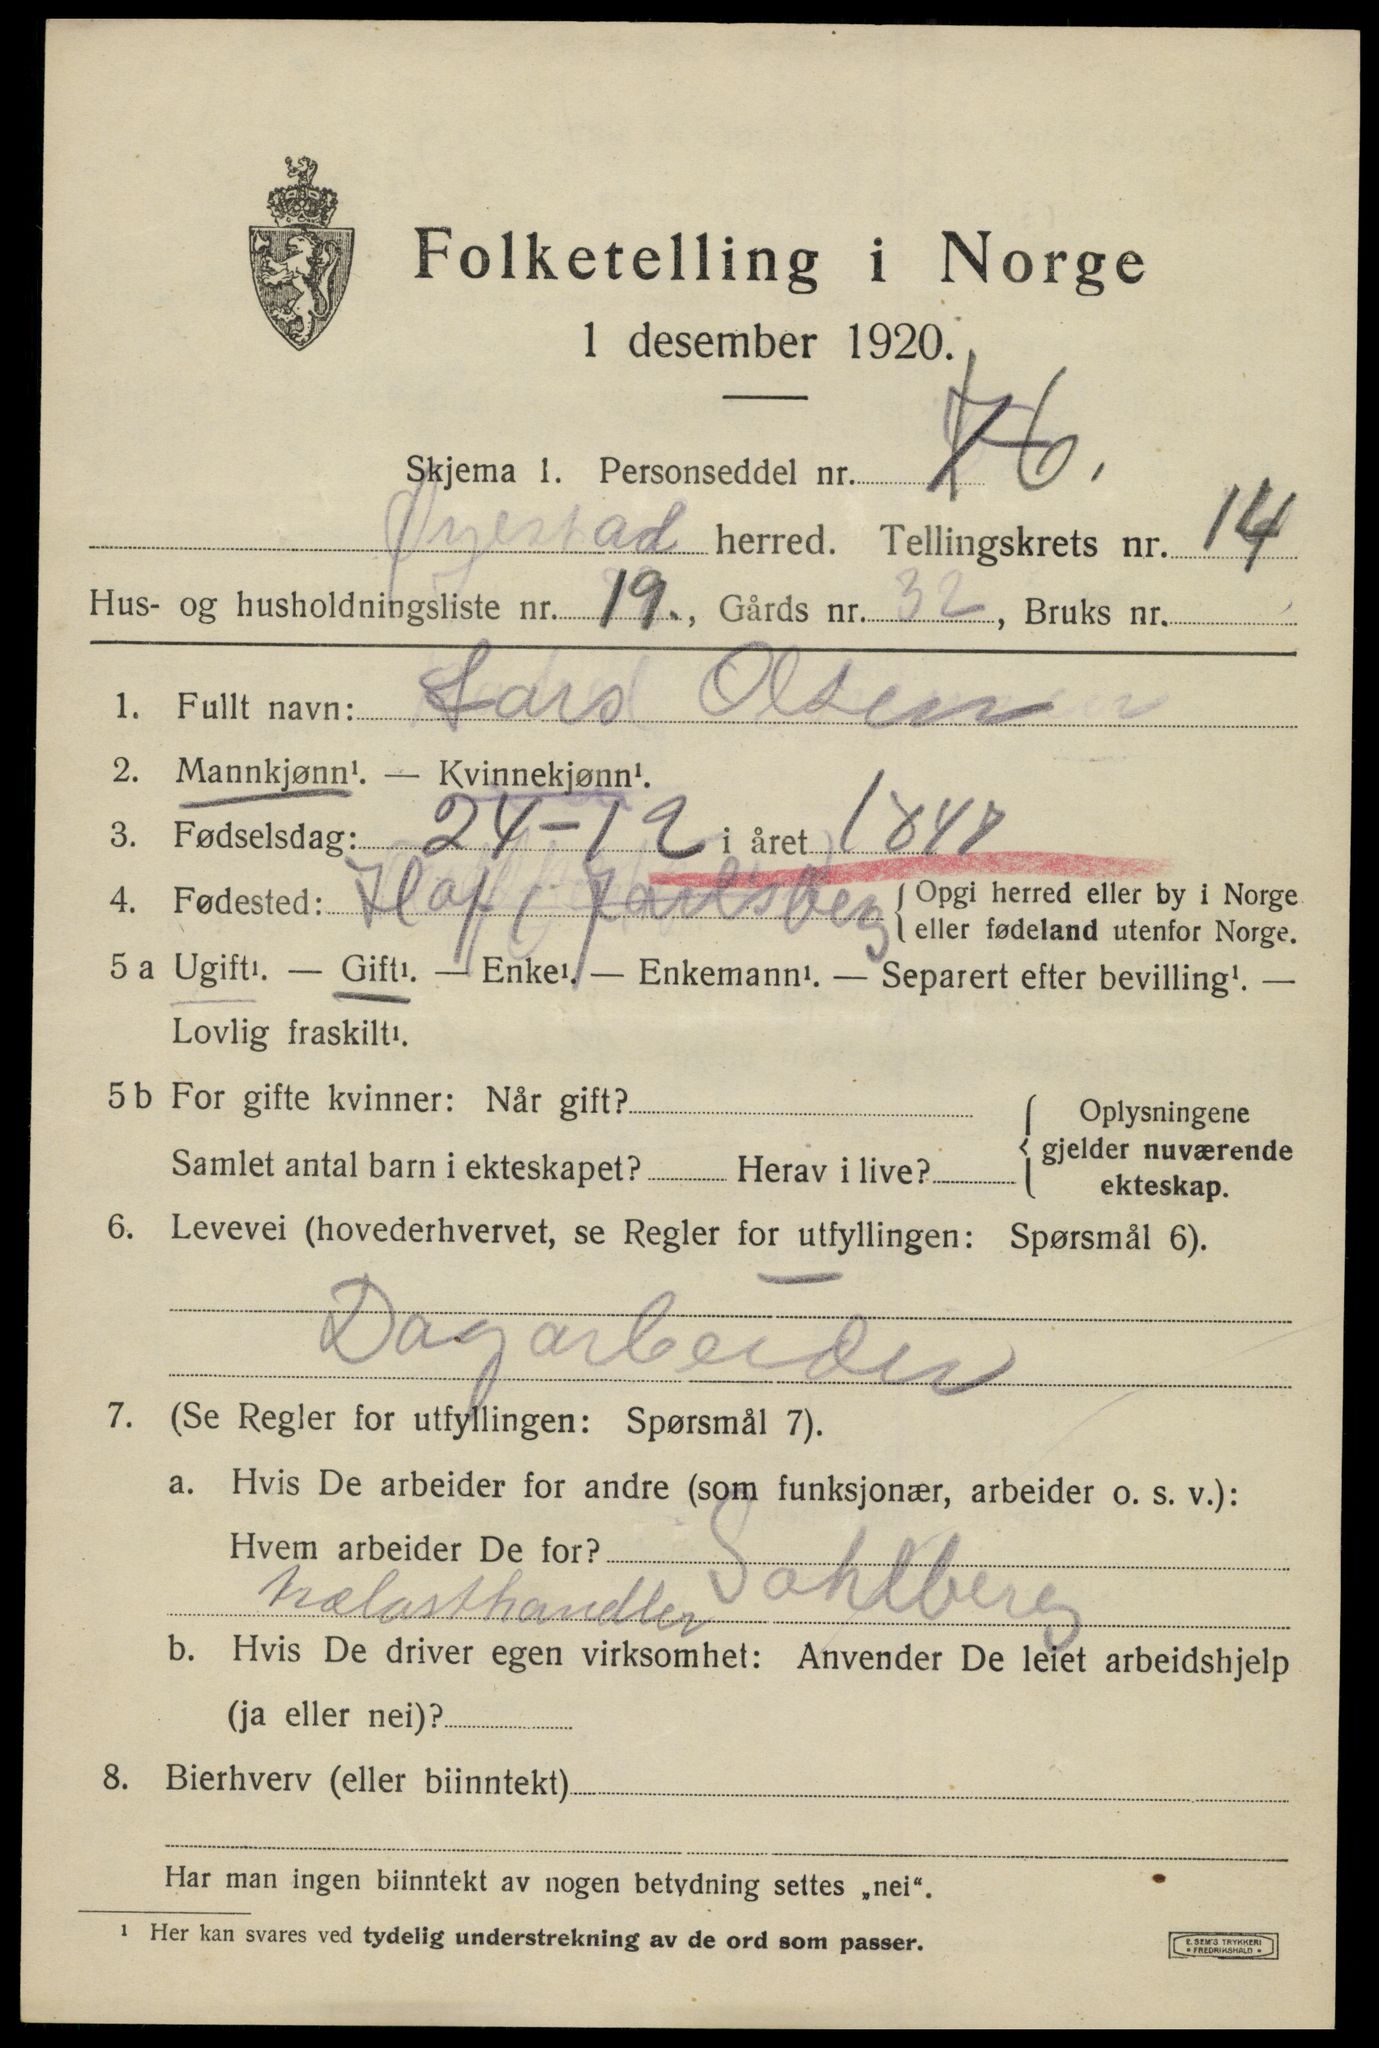 Folketelling i Norge
1 desember 1920.
Skjema 1. Personseddel nr. 76.
Øyestad herred. Tellingskrets nr. 14
Hus- og husholdningsliste nr. 19., Gårds nr. 32, Bruks nr.
1. Fullt navn: Lars Olsen
2. Mannkjønn¹. — Kvinnekjønn¹.
3. Fødselsdag: 24-12 i året 1847
4. Fødested: Hof i Jarlsberg { Opgi herred eller by i Norge
eller fødeland utenfor Norge.
5 a Ugift¹. — Gift¹. — Enke¹. — Enkemann¹. — Separert efter bevilling¹. —
Lovlig fraskilt¹.
5 b For gifte kvinner: Når gift?
Samlet antal barn i ekteskapet? Herav i live?
{ Oplysningene
gjelder nuværende
ekteskap.
6. Levevei (hovederhvervet, se Regler for utfyllingen: Spørsmål 6).
Dagarbeider
7. (Se Regler for utfyllingen: Spørsmål 7).
a. Hvis De arbeider for andre (som funksjonær, arbeider o. s. v.):
Hvem arbeider De for? Sahlberg
trælasthandler
b. Hvis De driver egen virksomhet: Anvender De leiet arbeidshjelp
(ja eller nei)?
8. Bierhverv (eller biinntekt)
Har man ingen biinntekt av nogen betydning settes „nei“.
¹ Her kan svares ved tydelig understrekning av de ord som passer.
E. SEM'S TRYKKERI
• FREDRIKSHALD •